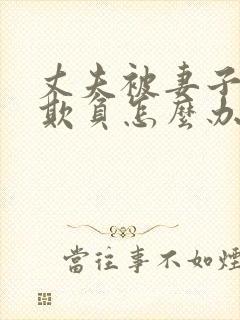 丈夫被妻子
欺負怎麼办
當往事不如煙